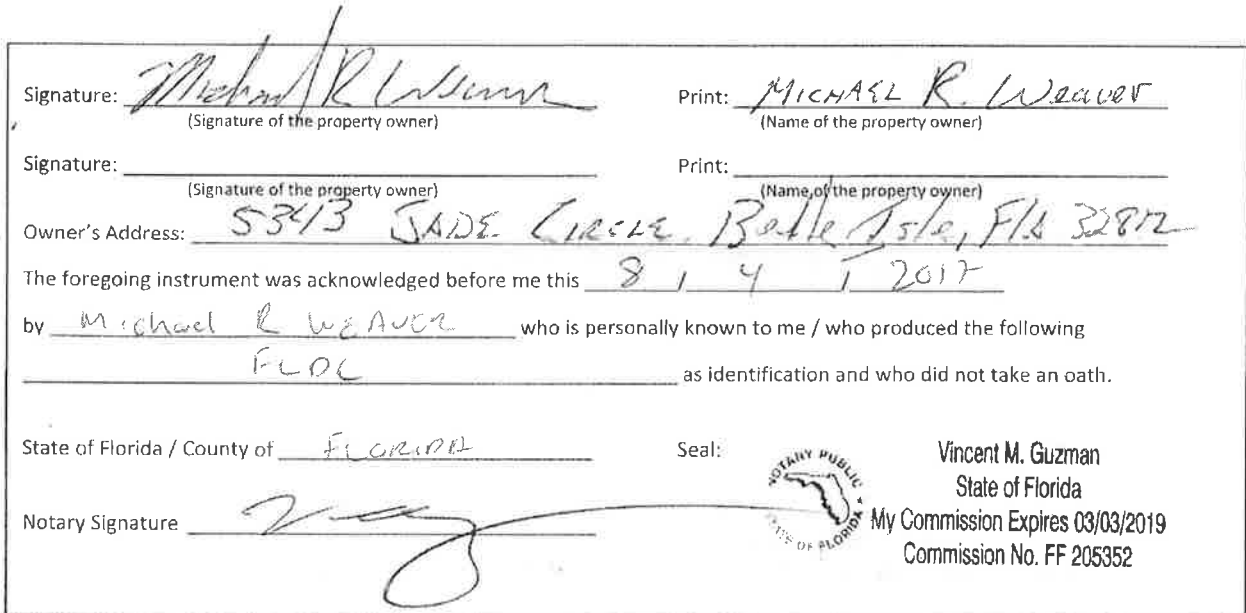 Signature: Michael R Weaver Print: MICHAEL R. Weaver
(Signature of the property owner) (Name of the property owner)
Signature: Print:
(Signature of the property owner) (Name of the property owner)
Owner's Address: 5343 JADE CIRCLE Belle Isle, Fla 32812
The foregoing instrument was acknowledged before me this 8 / 4 / 2017
by Michael R WEAVER who is personally known to me / who produced the following
FLDL as identification and who did not take an oath.
State of Florida / County of FLORIDA Seal:
NOTARY PUBLIC
STATE OF FLORIDA
Vincent M. Guzman
State of Florida
My Commission Expires 03/03/2019
Commission No. FF 205352
Notary Signature